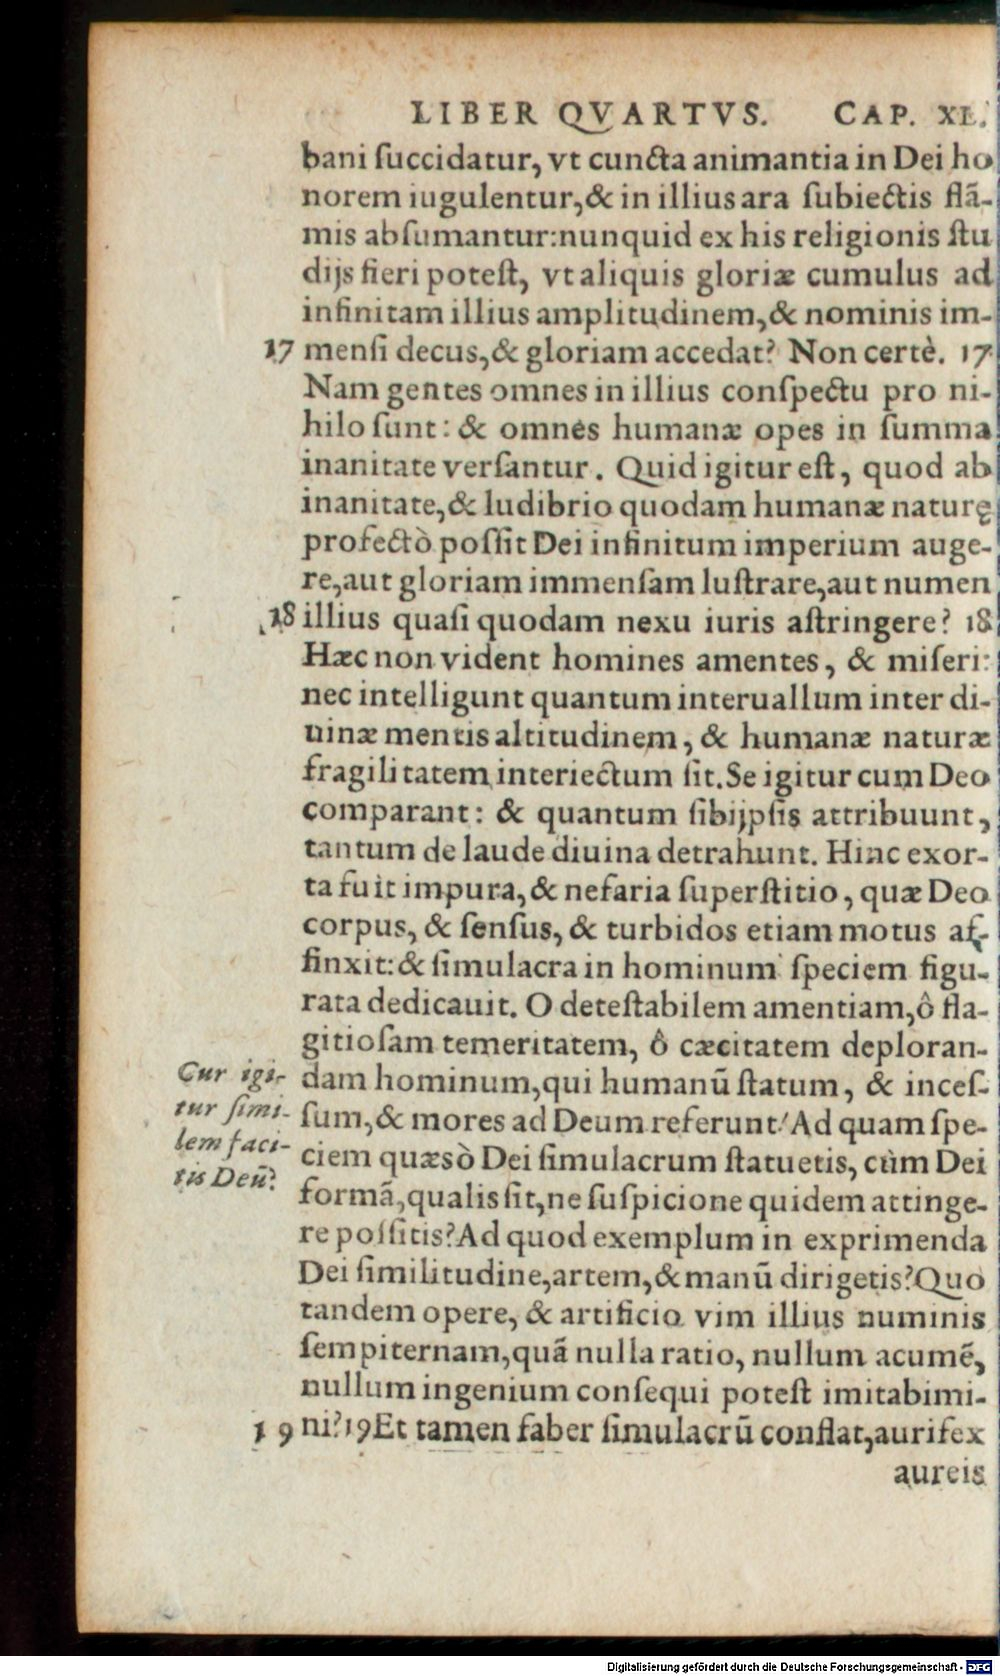 LIBER QVARTVS. CAP. XL.
bani ſuccidatur, vt cuncta animantia in Dei ho
norem iugulentur,& in illius ara ſubiectis flã-
mis abſumantur:nunquid ex his religionis ſtu
dijs fieri poteſt, vt aliquis gloriæ cumulus ad
infinitam illius amplitudinem,& nominis im-
17 menſi decus,& gloriam accedat? Non certè. 17
Nam gentes omnes in illius conſpectu pro ni-
hilo ſunt: & omnes humanæ opes in ſumma
inanitate verſantur. Quid igitur eſt, quod ab
inanitate,& ludibrio quodam humanæ naturę
profectò poſſit Dei infinitum imperium auge-
re,aut gloriam immenſam luſtrare,aut numen
18 illius quaſi quodam nexu iuris aſtringere? 18
Hæc non vident homines amentes, & miſeri:
nec intelligunt quantum interuallum inter di-
uinæ mentis altitudinem, & humanæ naturæ
fragilitatem interiectum ſit. Se igitur cum Deo
comparant: & quantum ſibijpſis attribuunt,
tantum de laude diuina detrahunt. Hinc exor-
ta fuit impura,& nefaria ſuperſtitio, quæ Deo
corpus, & ſenſus, & turbidos etiam motus af-
finxit:& ſimulacra in hominum ſpeciem figu-
rata dedicauit. O deteſtabilem amentiam,ô fla-
gitioſam temeritatem, ô cæcitatem deploran-
dam hominum,qui humanũ ſtatum, & inceſ-
ſum,& mores ad Deum referunt! Ad quam ſpe-
ciem quæsò Dei ſimulacrum ſtatuetis, cùm Dei
formã,qualis ſit,ne ſuſpicione quidem attinge-
re poſſitis? Ad quod exemplum in exprimenda
Dei ſimilitudine,artem,& manũ dirigetis? Quo
tandem opere, & artificio vim illius numinis
ſempiternam,quã nulla ratio, nullum acumẽ,
nullum ingenium conſequi poteſt imitabimi-
19 ni? 19 Et tamen faber ſimulacrũ conflat,aurifex
aureis
Cur igi-
tur ſimi-
lem faci-
tis Deũ?
Digitalisierung gefördert durch die Deutsche Forschungsgemeinschaft - DFG